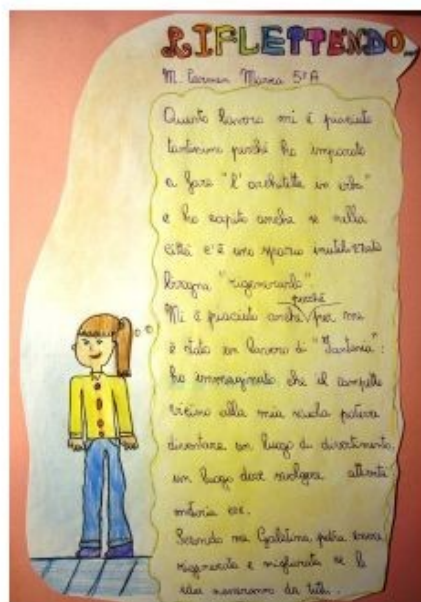 RIFLETTENDO...
M. Carmen Marra 5ª A
Questo lavoro mi è piaciuto
tantissimo perché ho imparato
a fare "l'architetto in erba"
e ho capito anche se nella
città c'è uno spazio inutilizzato
bisogna "rigenerarlo".
perché
Mi è piaciuto anche per me
è stato un lavoro di "Fantasia":
ho immaginato che il campetto
vicino alla mia scuola poteva
diventare un luogo di divertimento,
un luogo dove svolgere attività
motoria ecc.
Secondo me Galatina potrà essere
rigenerata e migliorata se le
idee da tutti.